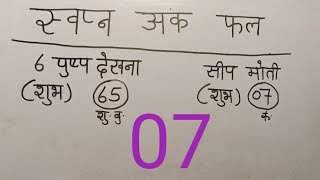 स्वप्न अंक फल
6 पुष्प देखना
(शुभ) 65
शु. बु.
सीप मोती
(शुभ) 07
क.
07